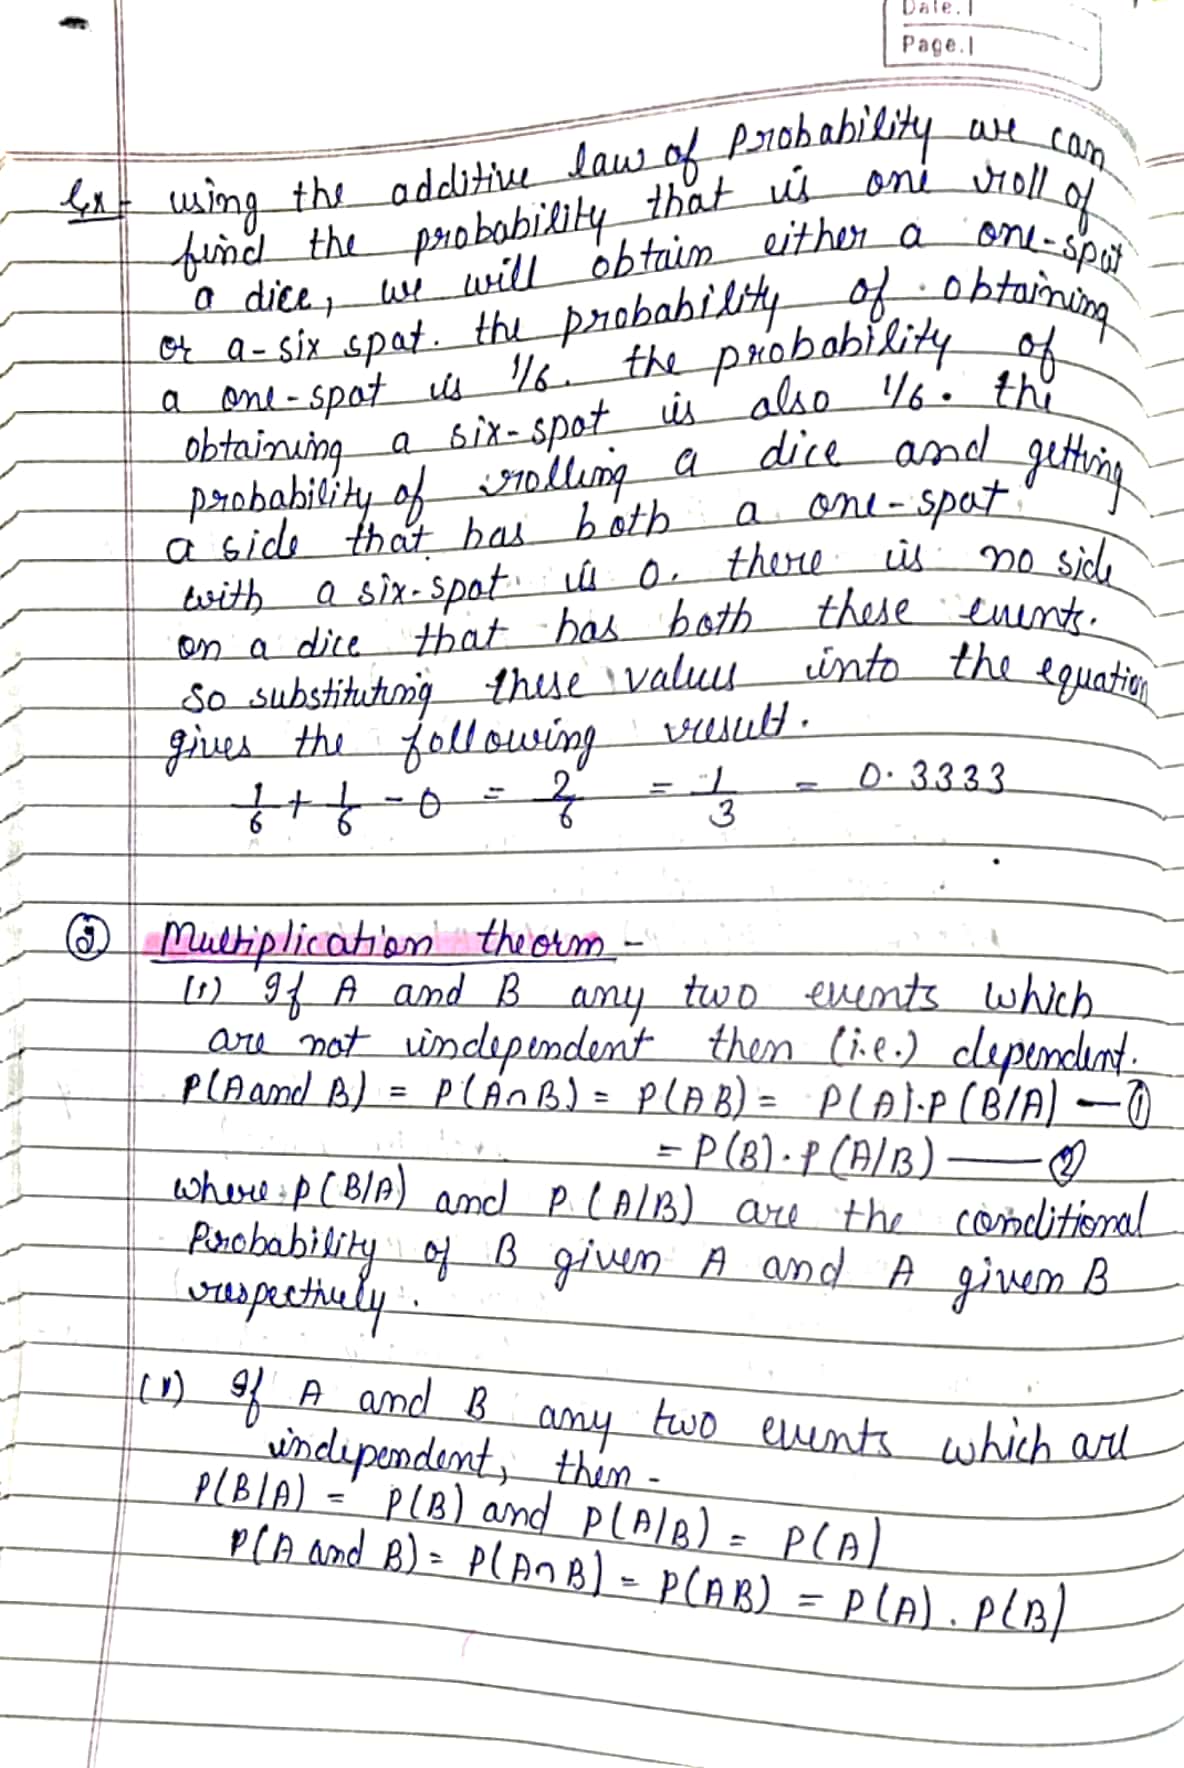 Date.
Page.
Ex- using the additive law of Probability we can
find the probability that is one roll of
a dice, we will obtain either a one-spot
or a-six spat. the probability of obtaining
a one-spat is 1/6. the probability of
obtaining a six-spot is also 1/6. the
probability of rolling a dice and getting
a side that has both a one-spat
with a six-spot is 0. there is no side
on a dice that has both these events.
So substituting these values into the equation
gives the following result.
1/6 + 1/6 - 0 = 2/6 = 1/3 = 0.3333
② Multiplication theorm -
(1) If A and B any two events which
are not independent then (i.e.) dependent.
P(A and B) = P(A∩B) = P(AB) = P(A).P(B/A) — ①
= P(B).P(A/B) — ②
where P(B/A) and P(A/B) are the conditional
Probability of B given A and A given B
respectively.
(11) If A and B any two events which are
independent, then -
P(B/A) = P(B) and P(A/B) = P(A)
P(A and B) = P(A∩B) = P(AB) = P(A).P(B)